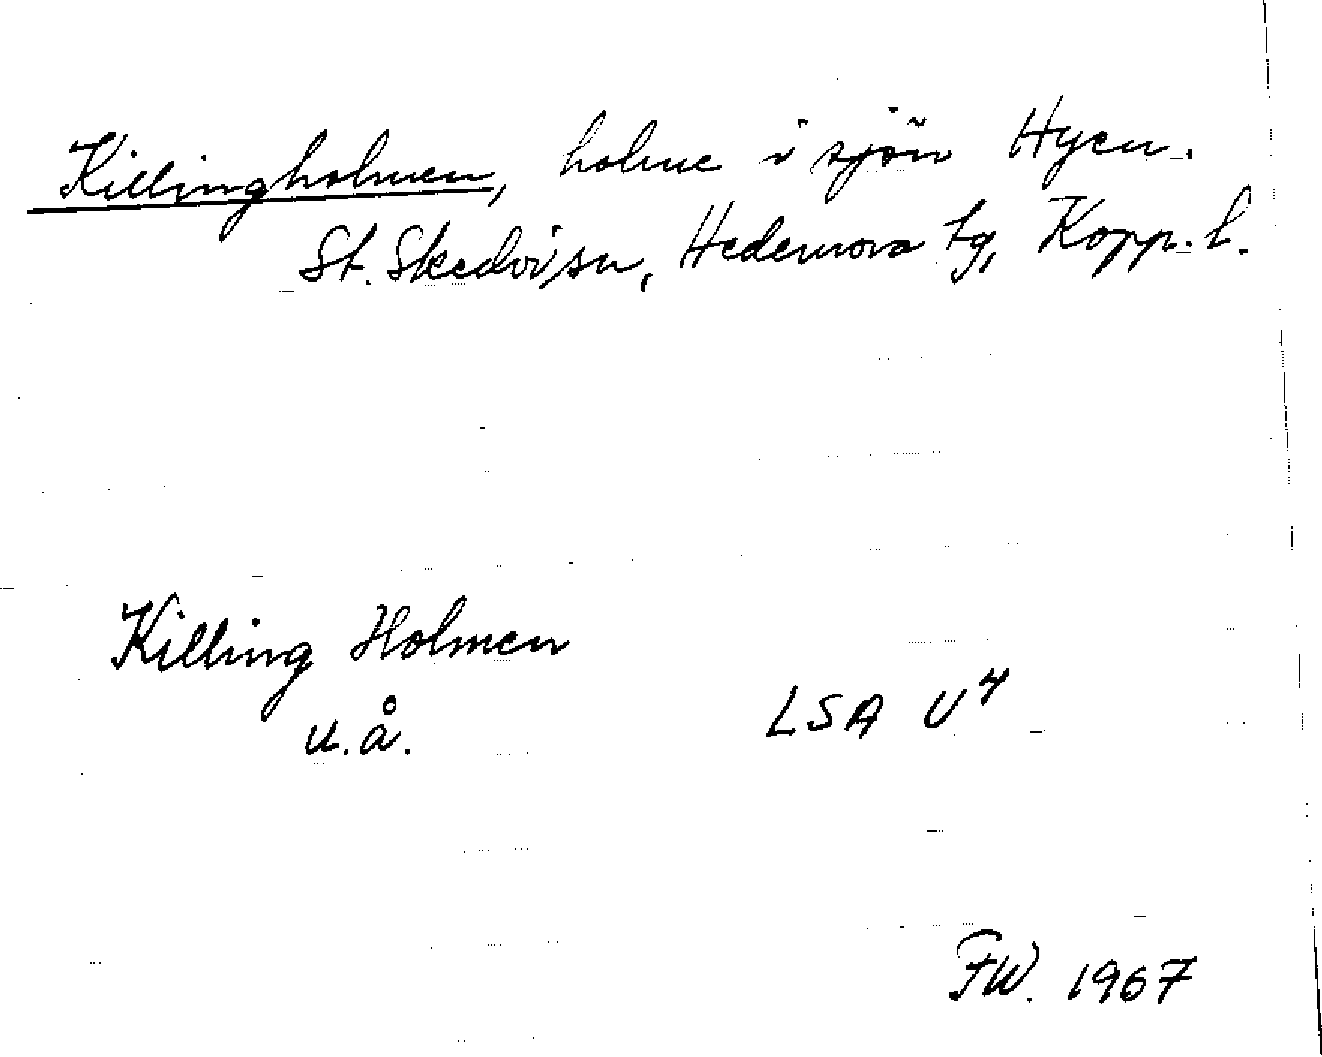 Killingholmen, holme i sjön Hyen.
St. Skedvi sn, Hedemora tg, Kopp. l.
Killing Holmen
u.å. LSA U4
FW. 1967